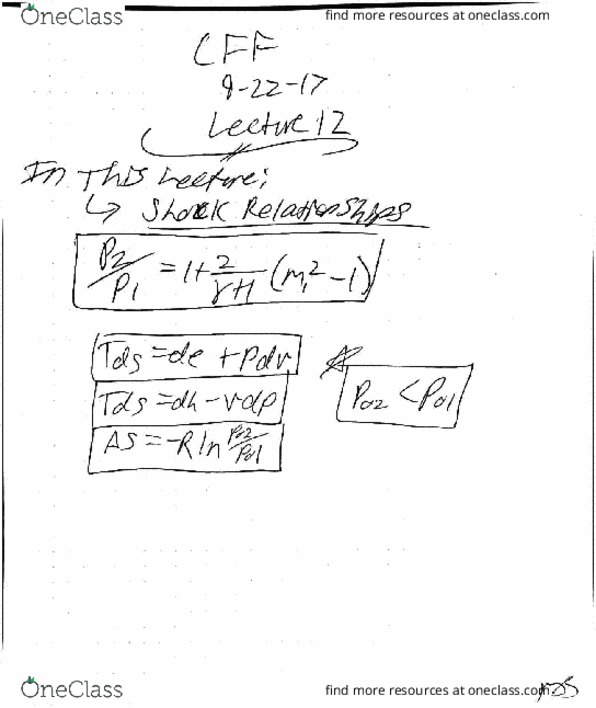 OneClass
find more resources at oneclass.com
CFF
9-22-17
Lecture 12
In This Lecture:
↳ Shock Relationships
P2/P1 = 1 + 2/(γ+1) (M₁² - 1)
Tds = de + Pdv
Tds = dh - vdp
ΔS = -R ln Po2/Po1
Po2 < Po1
OneClass
find more resources at oneclass.com